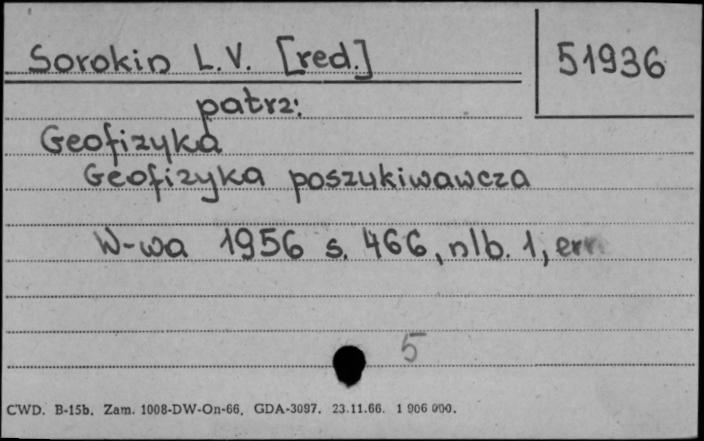 Sorokin L.V. [red.]
51936
patrz:
Geofizyka
Geofizyka poszukiwawcza
W-wa 1956 s. 466, nlb. 1, err
5
CWD. B-15b. Zam. 1008-DW-On-66. GDA-3097. 23.11.66. 1 906 000.